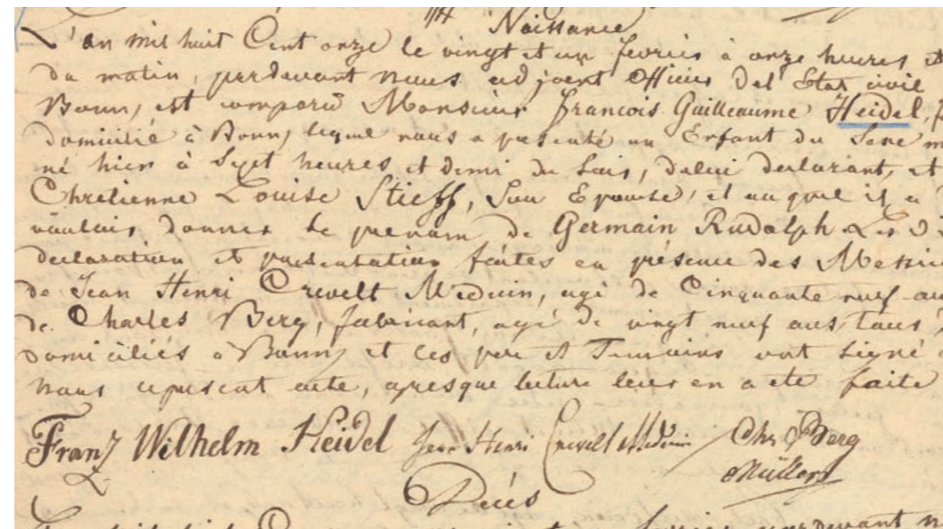 Naissance
L'an mil huit Cent onze le vingt et un fevrier à onze heures et
du matin, perdevant nous adjoint Officier del Etat civil
Bonn, est comparu Monsieur François Guilleaume Heidel,
domicilié à Bonn, lequel nous a presenté un Enfant du Sexe m
né hier à Sept heures et demi du Soir, delui declarant, et
Chretienne Louise Stieff, Son Epouse, et auquel il a
voulais donner le prenom de Germain Rudolph Les
declaration et presentation faites en présence des Messi
de Jean Henri Crevelt Medecin, agé de Cinquante neuf an
de Charles Berg, fabricant, agé de vingt neuf ans tous
domiciliés à Bonn, et les pere et Temoins ont Signé
nous lepresent acte, apresque lecture leur en a eté faite
Franz Wilhelm Heidel Jean Henri Crevelt Medecin Chr Berg
Müller
Décés